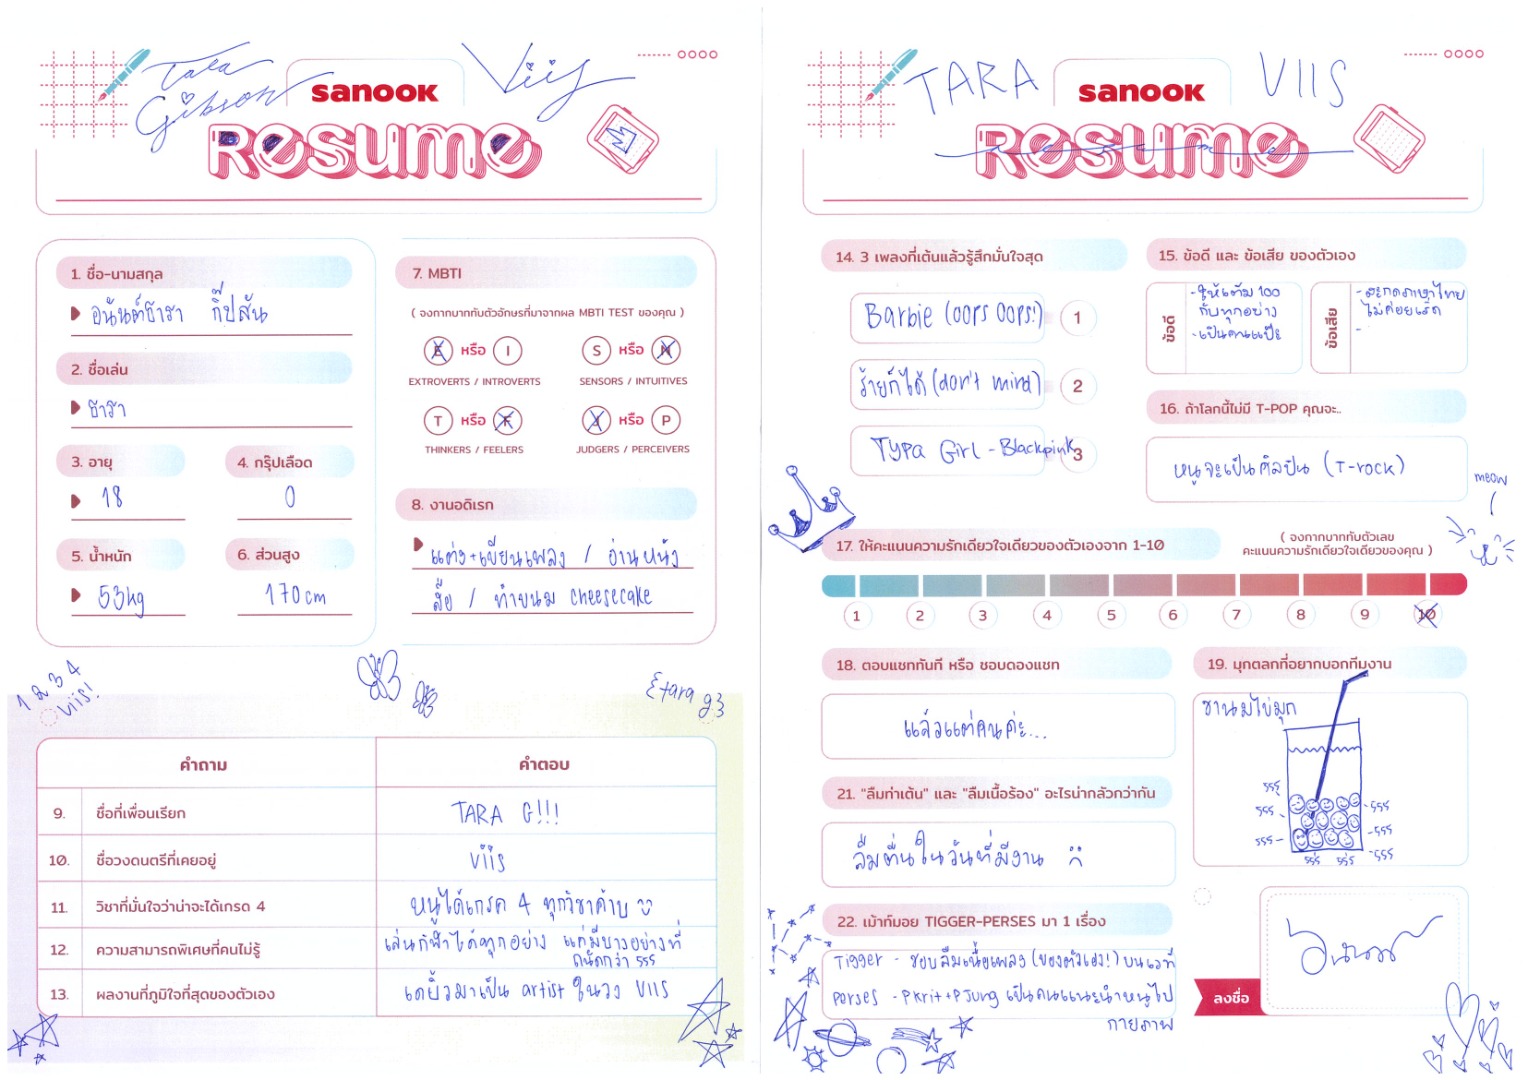 Tara
Gibson
sanook
Viis
Resume
1. ชื่อ-นามสกุล
อนันต์ธารา กิ๊ปสัน
2. ชื่อเล่น
ธารา
3. อายุ
18
4. กรุ๊ปเลือด
O
5. น้ำหนัก
53kg
6. ส่วนสูง
170cm
7. MBTI
( จงกากบาททับตัวอักษรที่มาจากผล MBTI TEST ของคุณ )
E หรือ I
S หรือ N
EXTROVERTS / INTROVERTS
SENSORS / INTUITIVES
T หรือ F
J หรือ P
THINKERS / FEELERS
JUDGERS / PERCEIVERS
8. งานอดิเรก
แต่ง+เขียนเพลง / อ่านหนัง
สือ / ทำขนม cheesecake
1 2 3 4
viis!
{tara g}
คำถาม
คำตอบ
9. ชื่อที่เพื่อนเรียก
TARA G!!!
10. ชื่อวงดนตรีที่เคยอยู่
viis
11. วิชาที่มั่นใจว่าน่าจะได้เกรด 4
หนูได้เกรด 4 ทุกวิชาค้าบ
12. ความสามารถพิเศษที่คนไม่รู้
เล่นกีฬาได้ทุกอย่าง แต่มีบางอย่างที่
ถนัดกว่า 555
13. ผลงานที่ภูมิใจที่สุดของตัวเอง
เดบิ้วมาเป็น artist ในวง VIIS
TARA
sanook
VIIS
Resume
14. 3 เพลงที่เต้นแล้วรู้สึกมั่นใจสุด
Barbie (oops oops!) 1
ร้ายก็ได้ (don't mind) 2
Typa Girl - Blackpink 3
15. ข้อดี และ ข้อเสีย ของตัวเอง
ข้อดี
- ให้เต็ม 100
กับทุกอย่าง
- เป็นคนแป๊ะ
ข้อเสีย
- สะกดภาษาไทย
ไม่ค่อยเร็ด
-
16. ถ้าโลกนี้ไม่มี T-POP คุณจะ..
หนูจะเป็นศิลปิน (T-rock)
meow
17. ให้คะแนนความรักเดียวใจเดียวของตัวเองจาก 1-10
( จงกากบาททับตัวเลข
คะแนนความรักเดียวใจเดียวของคุณ )
1 2 3 4 5 6 7 8 9 10
18. ตอบแชททันที หรือ ชอบดองแชท
แล้วแต่คนค่ะ...
19. มุกตลกที่อยากบอกทีมงาน
ชานมไข่มุก
555
555
555
555
555
555
555
555
21. "ลืมท่าเต้น" และ "ลืมเนื้อร้อง" อะไรน่ากลัวกว่ากัน
ลืมตื่นในวันที่มีงาน
22. เม้าท์มอย TIGGER-PERSES มา 1 เรื่อง
Tigger - ชอบลืมเนื้อเพลง (ของตัวเอง!) บนเวที
perses - Pkrit+PJung เป็นคนแนะนำหนูไป
กายภาพ
ลงชื่อ